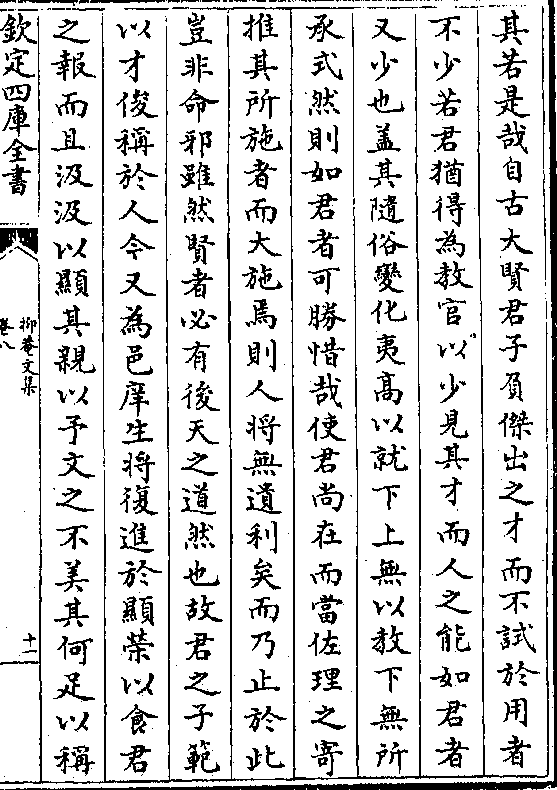 其若是哉自古大賢君子負傑出之才而不試於用者
不少若君猶得為教官以少見其才而人之能如君者
又少也盖其隨俗變化夷高以就下上無以教下無所
承式然則如君者可勝惜哉使君尚在而當佐理之寄
推其所施者而大施焉則人將無遺利矣而乃止於此
豈非命邪雖然賢者必有後天之道然也故君之子範
以才俊稱於人今又為邑庠生將復進於顯榮以食君
之報而且汲汲以顯其親以予文之不美其何足以稱
欽定四庫全書
抑菴文集
卷八
十一